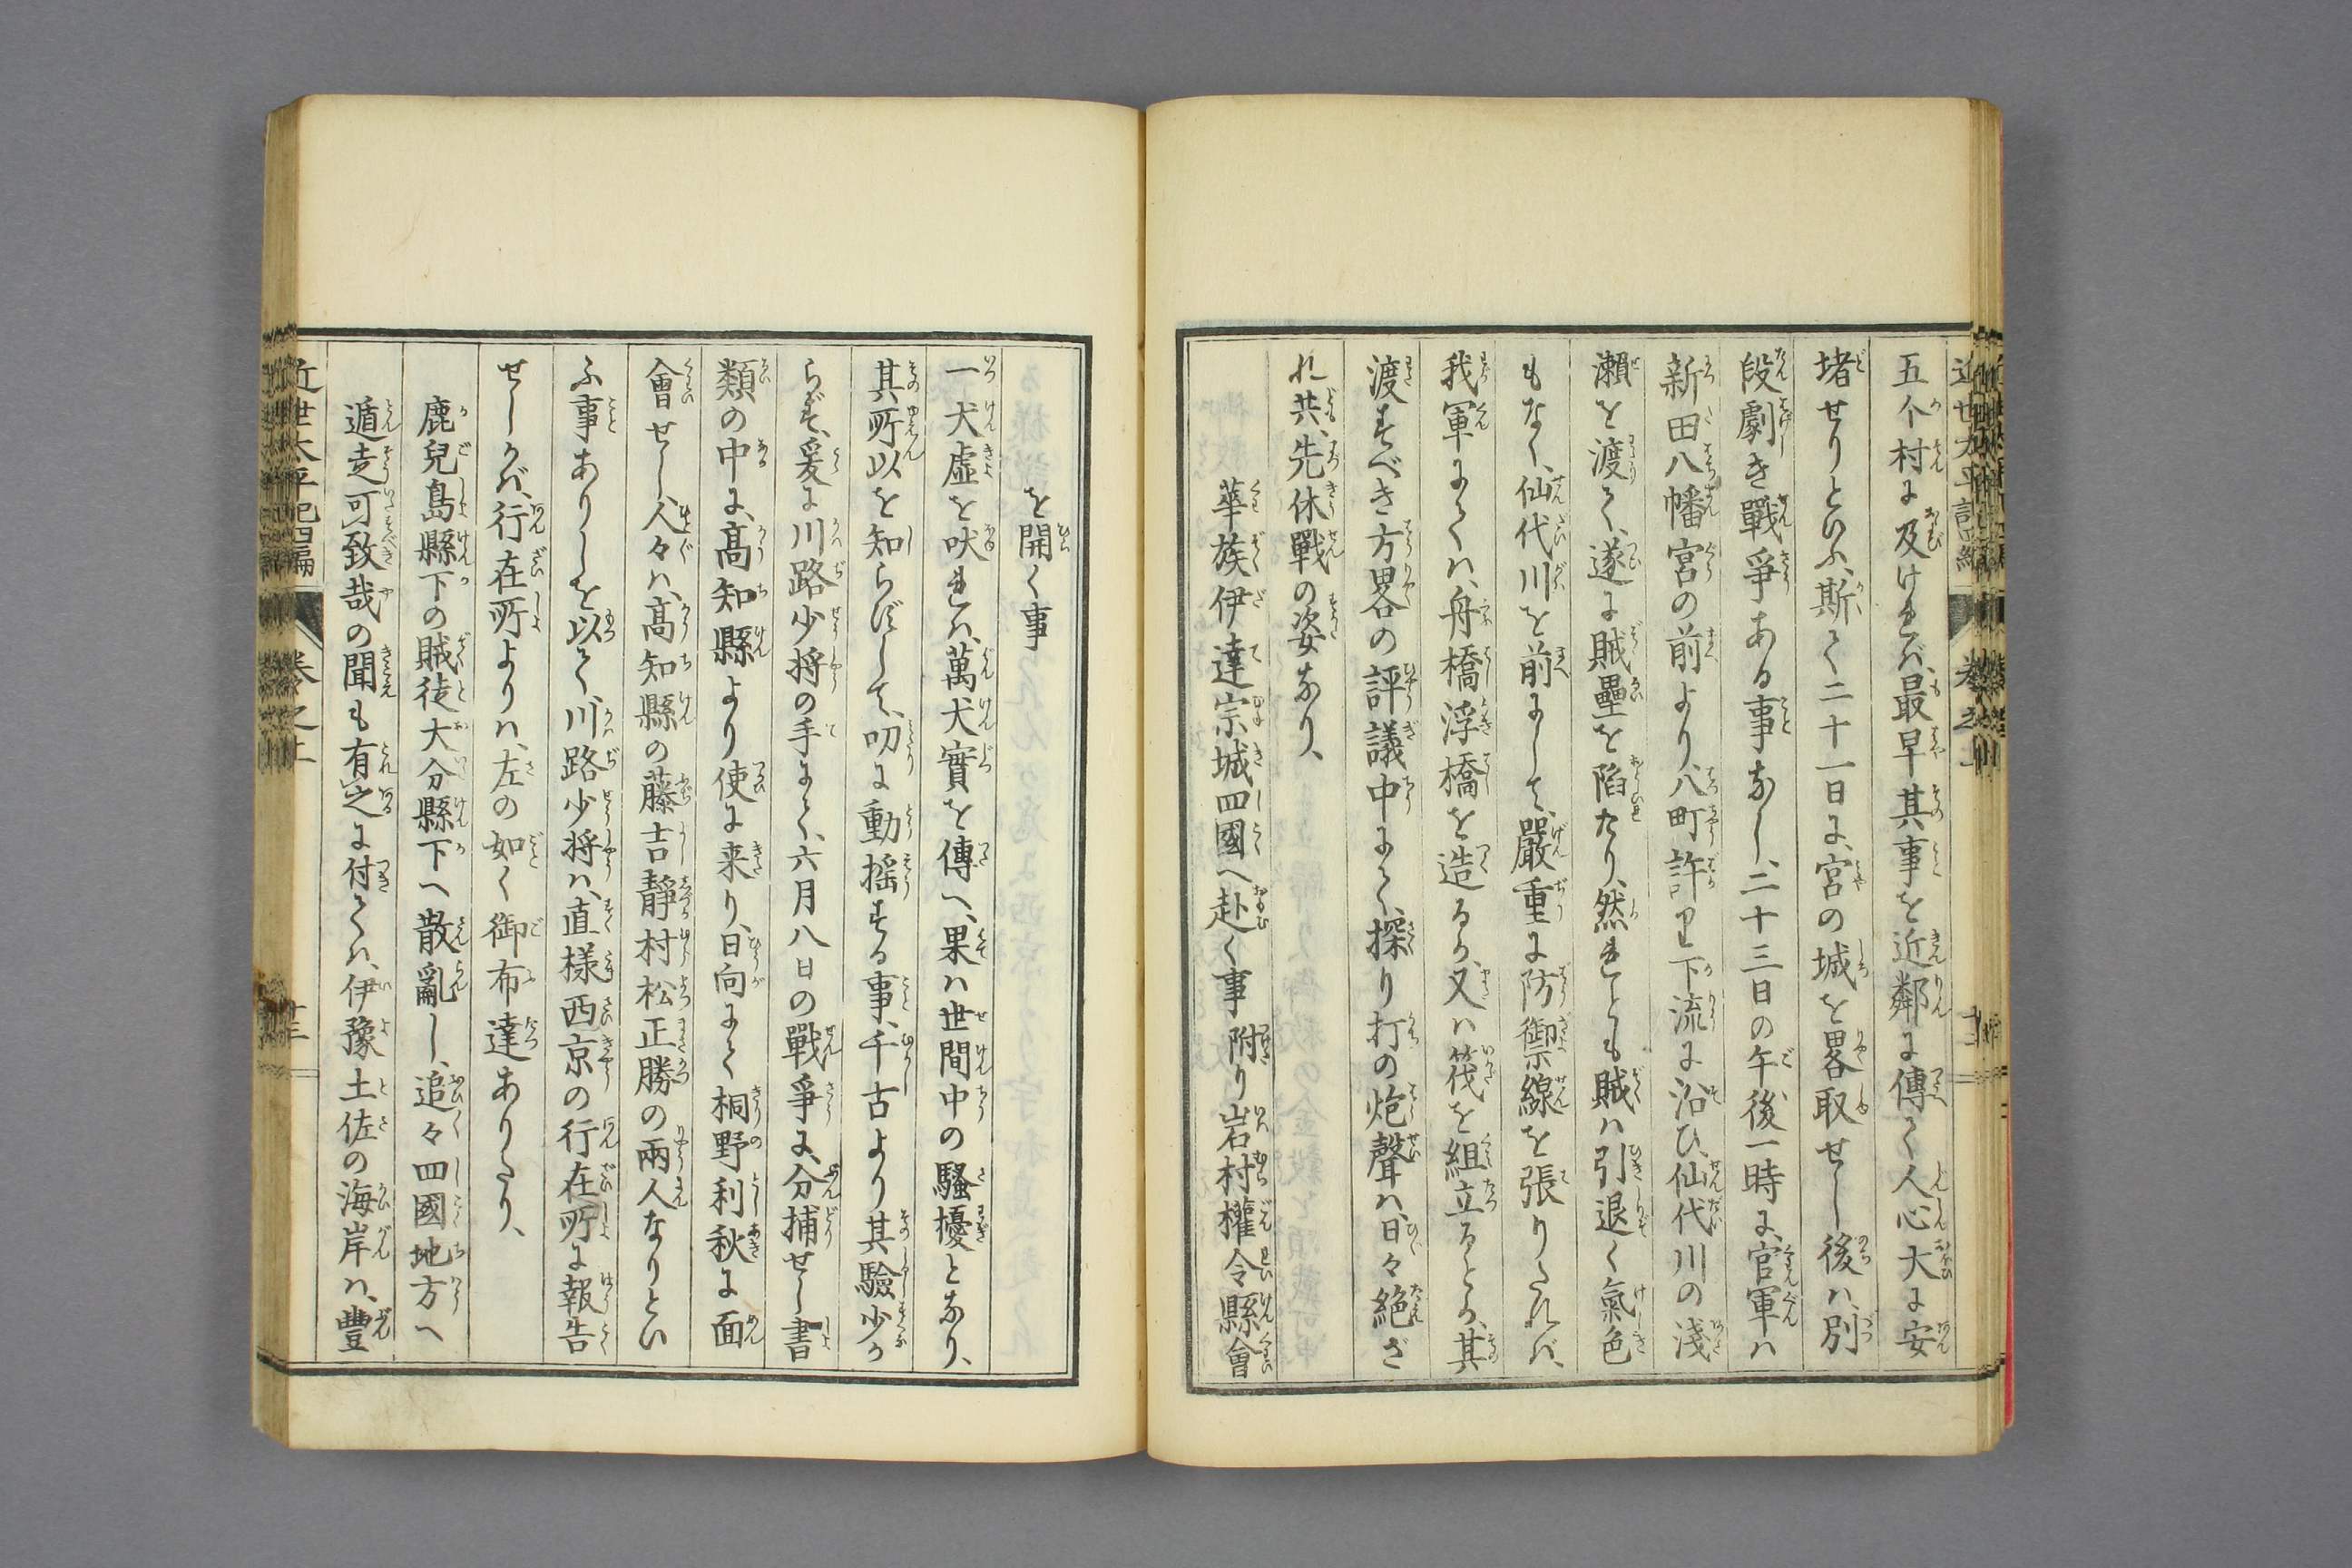 五个村に及けれバ、最早其事を近鄰に傳へて人心大に安
堵せりといふ、斯て二十一日に、宮の城を畧取せし後ハ、別
段劇き戰爭ある事なし、二十三日の午後一時に、官軍ハ
新田八幡宮の前より、八町許り下流に沿ひ、仙代川の淺
瀨を渡りて、遂に賊壘を陷たり、然れども賊ハ引退く氣色
もなく、仙代川を前にして、嚴重に防禦線を張りたれバ、
我軍にてハ、舟橋浮橋を造るか、又ハ筏を組立るとか、其
渡すべき方畧の評議中にて、探り打の炮聲ハ、日々絕ざ
れ共、先休戰の姿なり、
華族伊達宗城四國へ赴く事 附り岩村權令縣會
を開く事
一犬虛を吠れハ、萬犬實を傳へ、果ハ世間中の騷擾となり、
其所以を知らずして、叨に動搖する事、千古より其驗少か
らず、爰に川路少将の手にて、六月八日の戰爭に、分捕せし書
類の中に、髙知縣より使に来り、日向にて桐野利秋に面
會せし、人々ハ、髙知縣の藤吉靜村松正勝の兩人なりとい
ふ事ありしを以て、川路少将ハ、直様西京の行在所に報告
せしかバ、行在所よりハ、左の如く御布達ありたり、
鹿兒島縣下の賊徒大分縣下へ散亂し、追々四國地方へ
遁走可致哉の聞も有之に付てハ、伊豫土佐の海岸ハ、豐
近世太平記四編 卷之上 十三